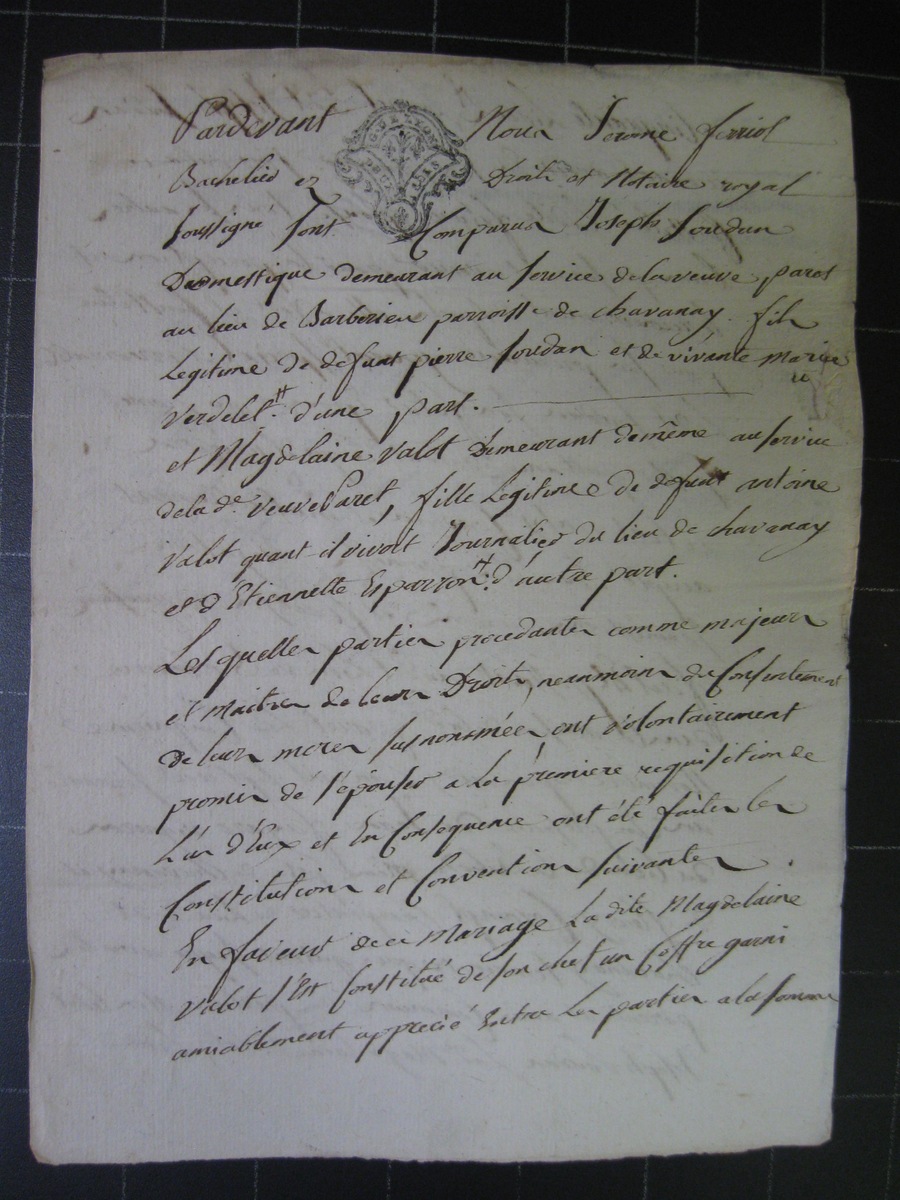 Pardevant Nous Jerome ferriol
Bachelier ez Droits et Notaire royal
soussigné sont Comparus Joseph Soudan
Domestique demeurant au service de la veuve paret
au lieu de Barberieu parroisse de chavanay. fils
Legitime de defunt pierre Soudan et de vivante marie
verdelet d'une part.
et Magdelaine valot Demeurant demême au service
de la de. veuve Paret, fille Legitime de defunt antoine
valot quant il vivoit Journalier du lieu de chavanay
et d'Etiennette Esparron d'autre part.
Lesquelles parties procedantes comme majeurs
et maitres de leurs Droits, neanmoins du Consentement
de leurs meres susnommées ont volontairement
promis de s'épouser a la premiere requisition de
L'un d'Eux et En Consequence ont été faites les
Constitutions et Conventions suivantes.
En faveur de ce Mariage La dite Magdelaine
valot s'Est Constitué de son chef un Coffre garni
amiablement apprecié Entre les parties a la somme